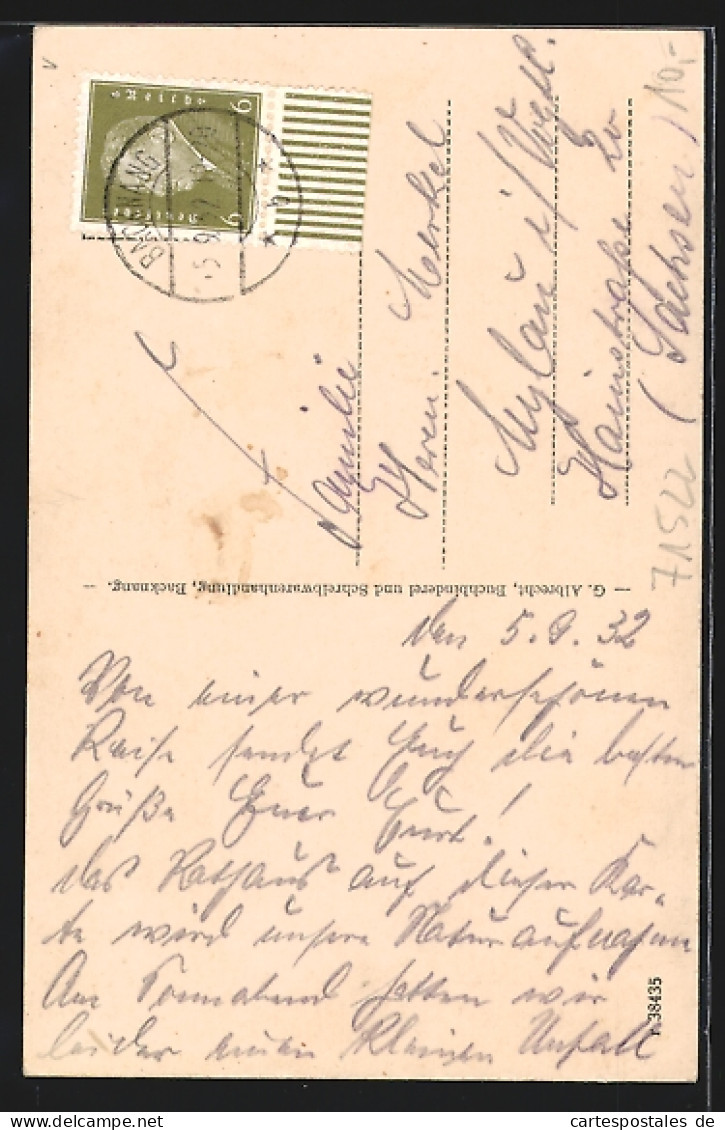 den 5.9.32
Von einer wunderschönen
Reise sendet Euch die besten
Grüße Euer Curt!
das Rathaus auf dieser Kar-
te wird unsere Naturaufnahme
Am Sonnabend hatten wir
leider einen kleinen Unfall
Familie
Herm. Merkel
Mylau i/Vogtl.
Hainstraße 20
(Sachsen)
10,-
71522
— G. Albrecht, Buchbinderei und Schreibwarenhandlung, Backnang. —
BACKNANG
5.9.32
* b *
6 6
r. 38435
www.ansichtskartenversand.com DE
cartespostales de